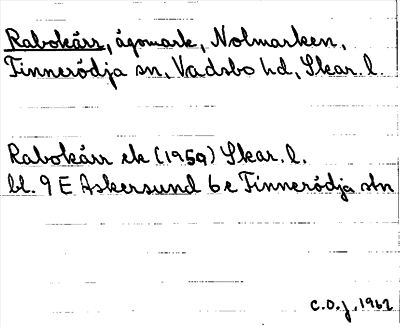 Rabokärr, ägomark, Nolmarken,
Finnerödja sn, Vadsbo hd, Skar. l.
Rabokärr ek (1959) Skar. l.
bl. 9 E Askersund 6 e Finnerödja stn
C.O.J. 1962